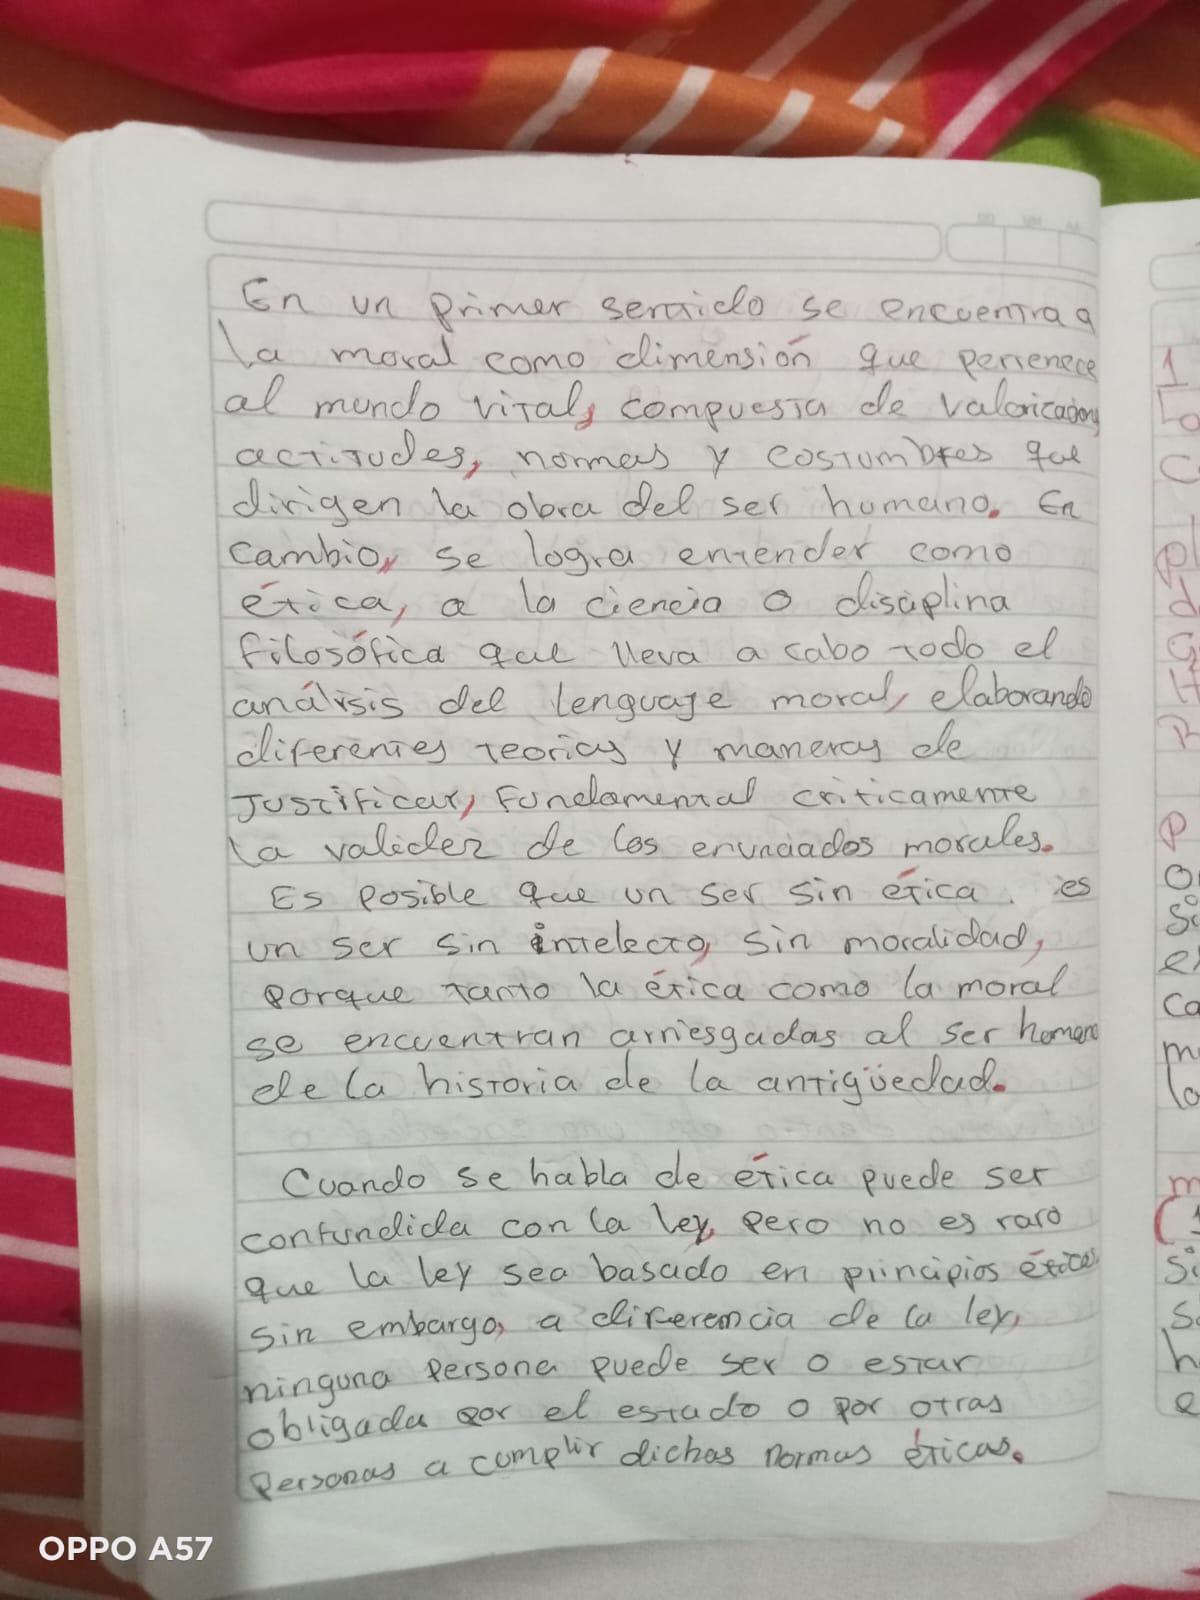 En un primer sentido se encuentra a
la moral como dimensión que pertenece
al mundo vital, compuesta de valoricaciones
actitudes, normas y costumbres que
dirigen la obra del ser humano. En
cambio, se logra entender como
ética, a la ciencia o disciplina
filosófica que lleva a cabo todo el
análisis del lenguaje moral, elaborando
diferentes teorias y maneras de
Justificar, Fundamental criticamente
la validez de los enunciados morales.
Es posible que un ser sin ética. es
un ser sin intelecto, sin moralidad,
porque tanto la ética como la moral
se encuentran arriesgadas al ser humano
de la historia de la antigüedad.
Cuando se habla de ética puede ser
confundida con la ley, pero no es raro
que la ley sea basado en principios éticos.
sin embargo, a diferencia de la ley,
ninguna persona puede ser o estar
obligada por el estado o por otras
personas a cumplir dichas normas éticas.
OPPO A57